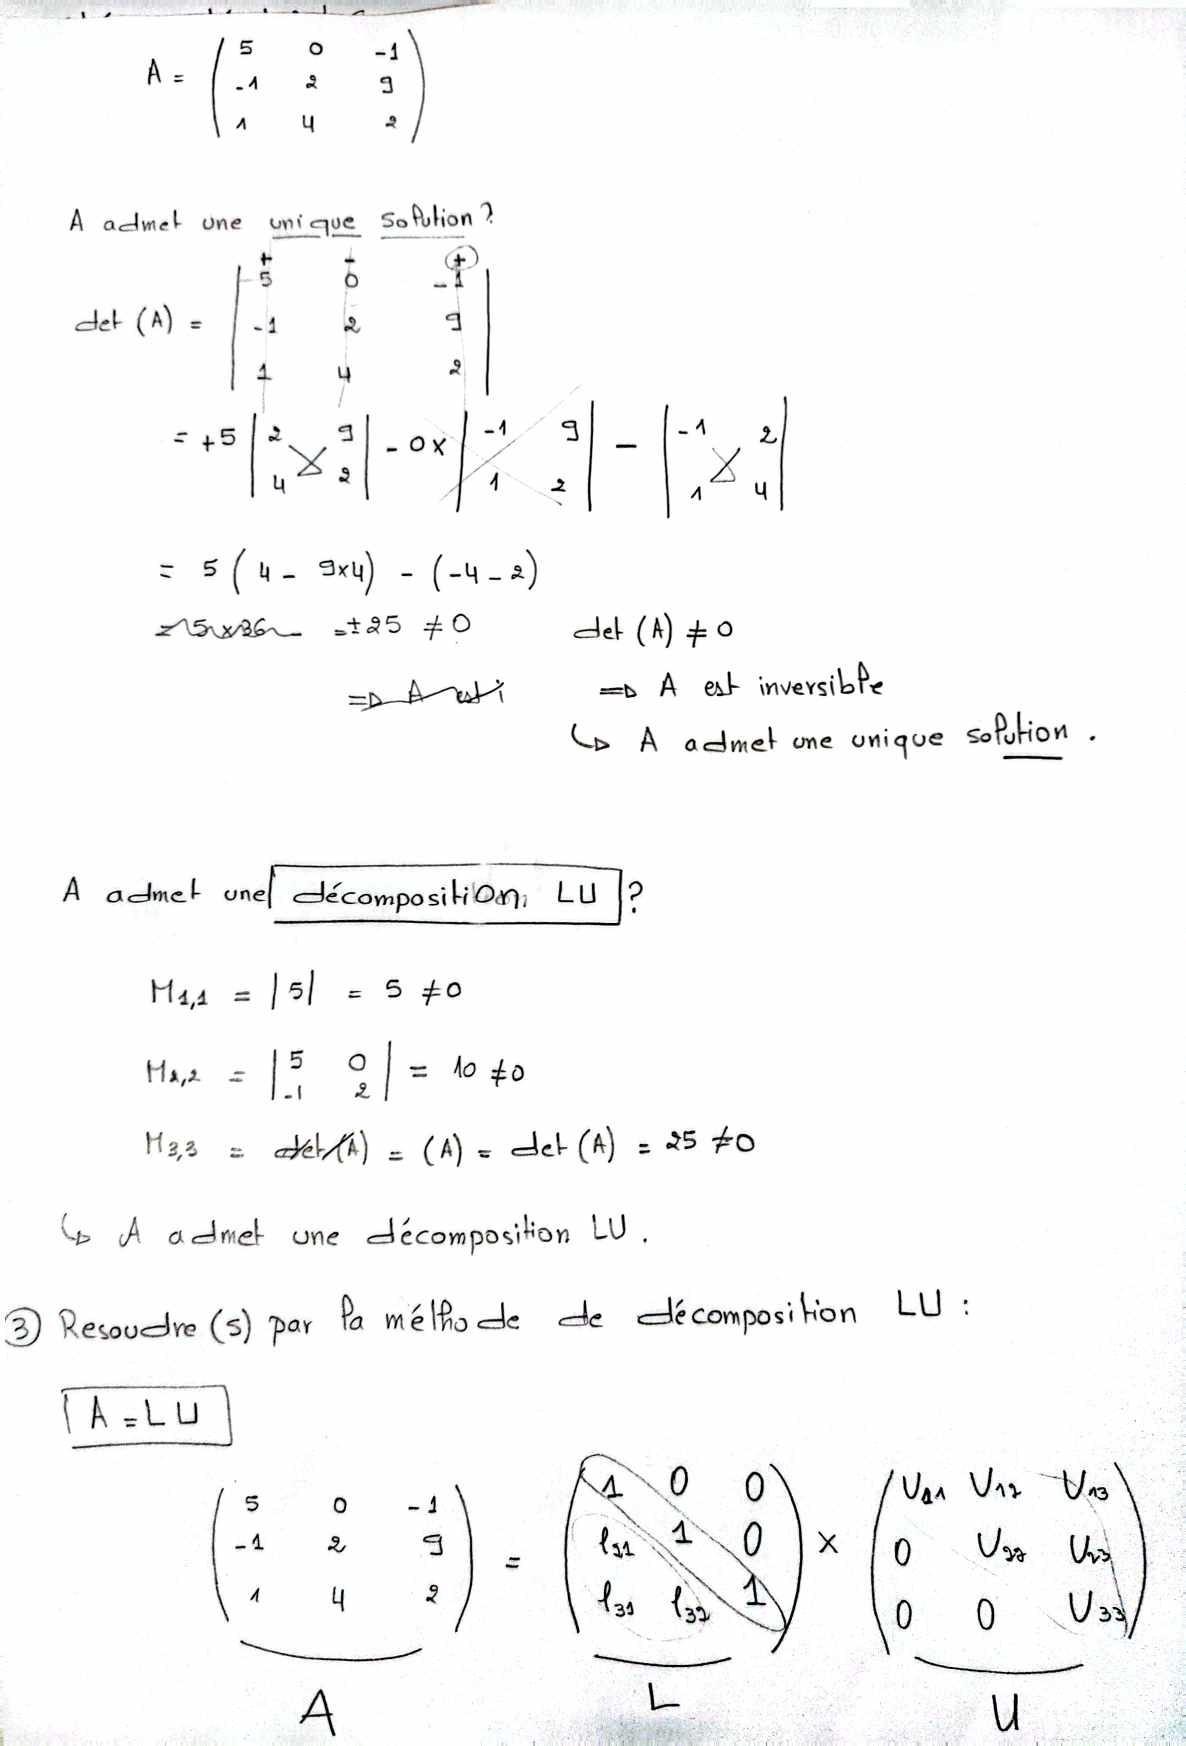 A = ( 5 0 -1
-1 2 9
1 4 2 )
A admet une unique solution ?
+ - +
det (A) = | 5 0 -1
-1 2 9
1 4 2 |
= +5 | 2 9 | - 0 x | -1 9 | - | -1 2 |
4 2 1 2 1 4
= 5 ( 4 - 9x4) - (-4 - 2)
= ±25 ≠ 0 det (A) ≠ 0
=> A est i => A est inversible
↳ A admet une unique solution .
A admet une décomposition LU ?
M1,1 = |5| = 5 ≠ 0
M2,2 = | 5 0
-1 2 | = 10 ≠ 0
M3,3 = det(A) = (A) = det (A) = 25 ≠ 0
↳ A admet une décomposition LU .
③ Resoudre (s) par la méthode de décomposition LU :
A = LU
( 5 0 -1 ) ( 1 0 0 ) ( U11 U12 U13 )
( -1 2 9 ) = ( l21 1 0 ) x ( 0 U22 U23 )
( 1 4 2 ) ( l31 l32 1 ) ( 0 0 U33 )
A L U